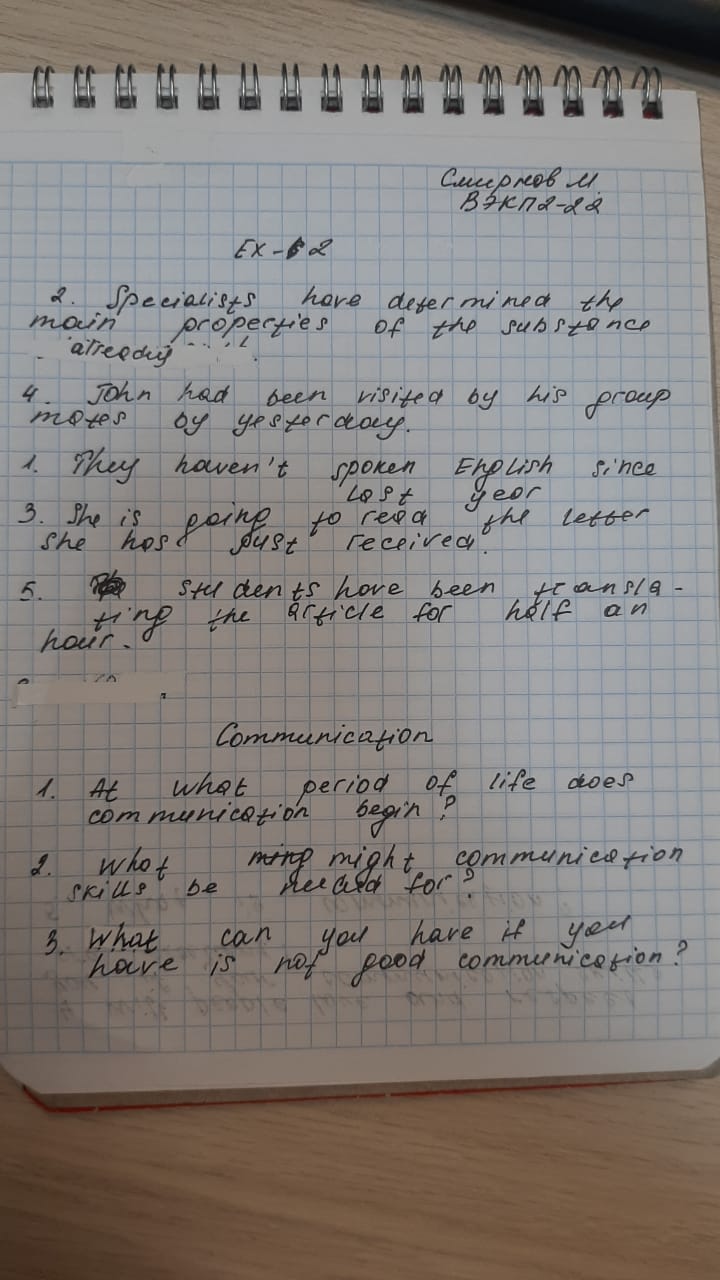 Смирнов М
ВЭКП2-22
Ex-2
2. Specialists have determined the
main properties of the substance
already
4. John had been visited by his group
mates by yesterday.
1. They haven't spoken English since
last year
3. She is going to read the letter
she has just received.
5. Students have been transla-
ting the article for half an
hour.
Communication
1. At what period of life does
communication begin?
2. What might communication
skills be needed for?
3. What can you have if you
have is not good communication?